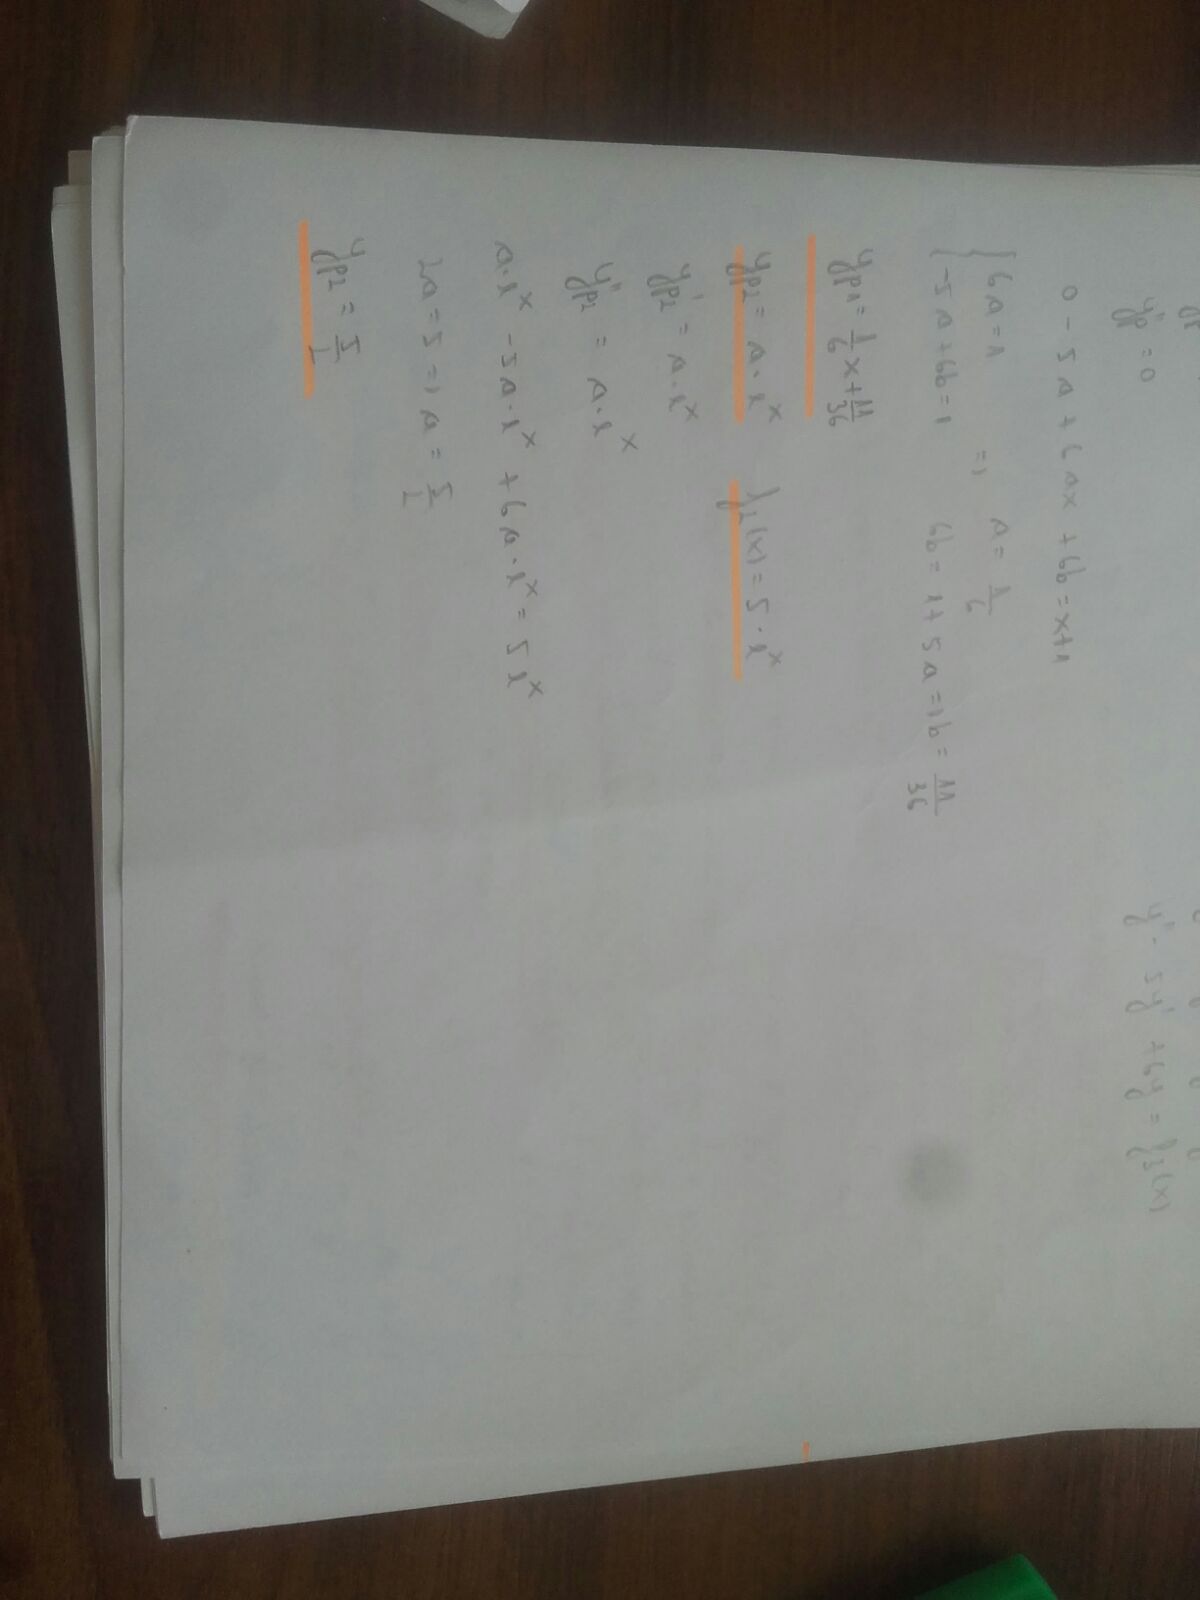 y''p = 0
y'' - 5y' + 6y = f3(x)
0 - 5a + 6ax + 6b = x+1
6a = 1 => a = 1/6
-5a + 6b = 1 6b = 1 + 5a => b = 11/36
yp1 = 1/6 x + 11/36
yp2 = a · e^x f2(x) = 5 · e^x
y'p2 = a · e^x
y''p2 = a · e^x
a · e^x - 5a · e^x + 6a · e^x = 5e^x
2a = 5 => a = 5/2
yp2 = 5/2